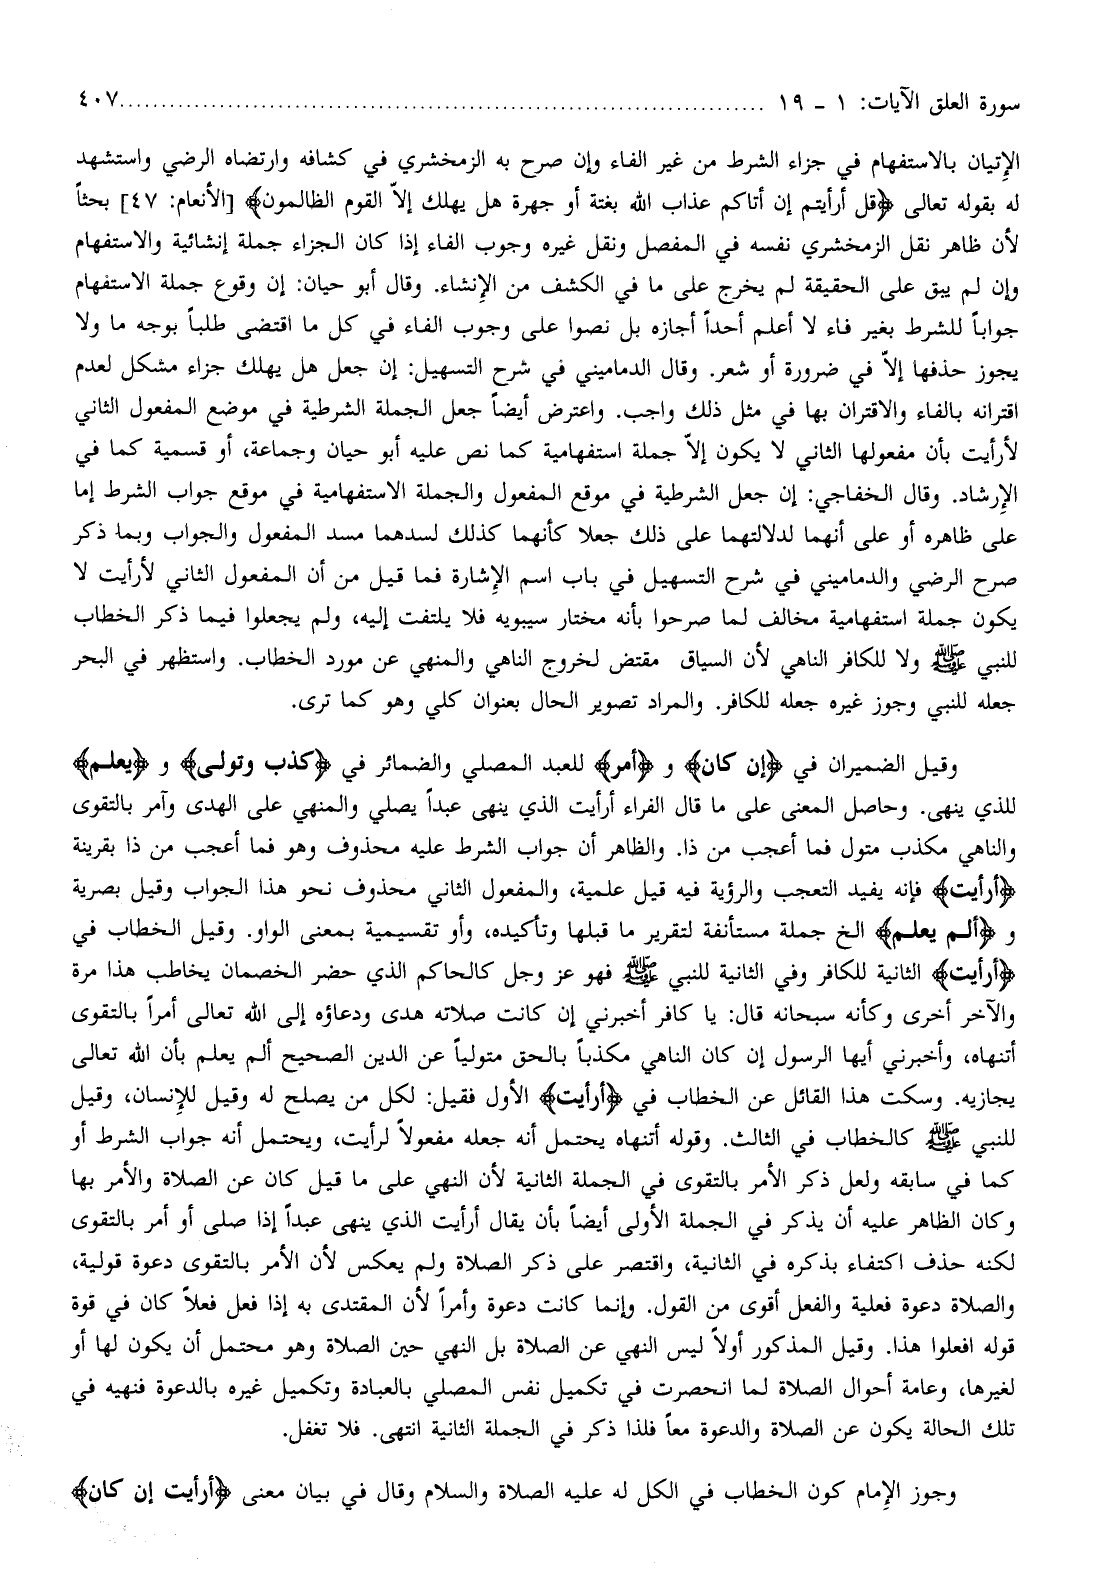 سورة العلق الآيات: ١ - ١٩ ........................................................................... ٤٠٧
الإتيان بالاستفهام في جزاء الشرط من غير الفاء وإن صرح به الزمخشري في كشافه وارتضاه الرضي واستشهد
له بقوله تعالى ﴿قل أرأيتم إن أتاكم عذاب الله بغتة أو جهرة هل يهلك إلاّ القوم الظالمون﴾ [الأنعام: ٤٧] بحثاً
لأن ظاهر نقل الزمخشري نفسه في المفصل ونقل غيره وجوب الفاء إذا كان الجزاء جملة إنشائية والاستفهام
وإن لم يبق على الحقيقة لم يخرج على ما في الكشف من الإنشاء. وقال أبو حيان: إن وقوع جملة الاستفهام
جواباً للشرط بغير فاء لا أعلم أحداً أجازه بل نصوا على وجوب الفاء في كل ما اقتضى طلباً بوجه ما ولا
يجوز حذفها إلاّ في ضرورة أو شعر. وقال الدماميني في شرح التسهيل: إن جعل هل يهلك جزاء مشكل لعدم
اقترانه بالفاء والاقتران بها في مثل ذلك واجب. واعترض أيضاً جعل الجملة الشرطية في موضع المفعول الثاني
لأرأيت بأن مفعولها الثاني لا يكون إلاّ جملة استفهامية كما نص عليه أبو حيان وجماعة، أو قسمية كما في
الإرشاد. وقال الخفاجي: إن جعل الشرطية في موقع المفعول والجملة الاستفهامية في موقع جواب الشرط إما
على ظاهره أو على أنهما لدلالتهما على ذلك جعلا كأنهما كذلك لسدهما مسد المفعول والجواب وبما ذكر
صرح الرضي والدماميني في شرح التسهيل في باب اسم الإشارة فما قيل من أن المفعول الثاني لأرأيت لا
يكون جملة استفهامية مخالف لما صرحوا بأنه مختار سيبويه فلا يلتفت إليه، ولم يجعلوا فيما ذكر الخطاب
للنبي ﷺ ولا للكافر الناهي لأن السياق مقتض لخروج الناهي والمنهي عن مورد الخطاب. واستظهر في البحر
جعله للنبي وجوز غيره جعله للكافر. والمراد تصوير الحال بعنوان كلي وهو كما ترى.
وقيل الضميران في ﴿إن كان﴾ و ﴿أمر﴾ للعبد المصلي والضمائر في ﴿كذب وتولى﴾ و ﴿يعلم﴾
للذي ينهى. وحاصل المعنى على ما قال الفراء أرأيت الذي ينهى عبداً يصلي والمنهي على الهدى وآمر بالتقوى
والناهي مكذب متول فما أعجب من ذا. والظاهر أن جواب الشرط عليه محذوف وهو فما أعجب من ذا بقرينة
﴿أرأيت﴾ فإنه يفيد التعجب والرؤية فيه قيل علمية، والمفعول الثاني محذوف نحو هذا الجواب وقيل بصرية
و ﴿ألم يعلم﴾ الخ جملة مستأنفة لتقرير ما قبلها وتأكيده، وأو تقسيمية بمعنى الواو. وقيل الخطاب في
﴿أرأيت﴾ الثانية للكافر وفي الثانية للنبي ﷺ فهو عز وجل كالحاكم الذي حضر الخصمان يخاطب هذا مرة
والآخر أخرى وكأنه سبحانه قال: يا كافر أخبرني إن كانت صلاته هدى ودعاؤه إلى الله تعالى أمراً بالتقوى
أتنهاه، وأخبرني أيها الرسول إن كان الناهي مكذباً بالحق متولياً عن الدين الصحيح ألم يعلم بأن الله تعالى
يجازيه. وسكت هذا القائل عن الخطاب في ﴿أرأيت﴾ الأول فقيل: لكل من يصلح له وقيل للإنسان، وقيل
للنبي ﷺ كالخطاب في الثالث. وقوله أتنهاه يحتمل أنه جعله مفعولاً لرأيت، ويحتمل أنه جواب الشرط أو
كما في سابقه ولعل ذكر الأمر بالتقوى في الجملة الثانية لأن النهي على ما قيل كان عن الصلاة والأمر بها
وكان الظاهر عليه أن يذكر في الجملة الأولى أيضاً بأن يقال أرأيت الذي ينهى عبداً إذا صلى أو أمر بالتقوى
لكنه حذف اكتفاء بذكره في الثانية، واقتصر على ذكر الصلاة ولم يعكس لأن الأمر بالتقوى دعوة قولية،
والصلاة دعوة فعلية والفعل أقوى من القول. وإنما كانت دعوة وأمراً لأن المقتدى به إذا فعل فعلاً كان في قوة
قوله افعلوا هذا. وقيل المذكور أولاً ليس النهي عن الصلاة بل النهي حين الصلاة وهو محتمل أن يكون لها أو
لغيرها، وعامة أحوال الصلاة لما انحصرت في تكميل نفس المصلي بالعبادة وتكميل غيره بالدعوة فنهيه في
تلك الحالة يكون عن الصلاة والدعوة معاً فلذا ذكر في الجملة الثانية انتهى. فلا تغفل.
وجوز الإمام كون الخطاب في الكل له عليه الصلاة والسلام وقال في بيان معنى ﴿أرأيت إن كان﴾